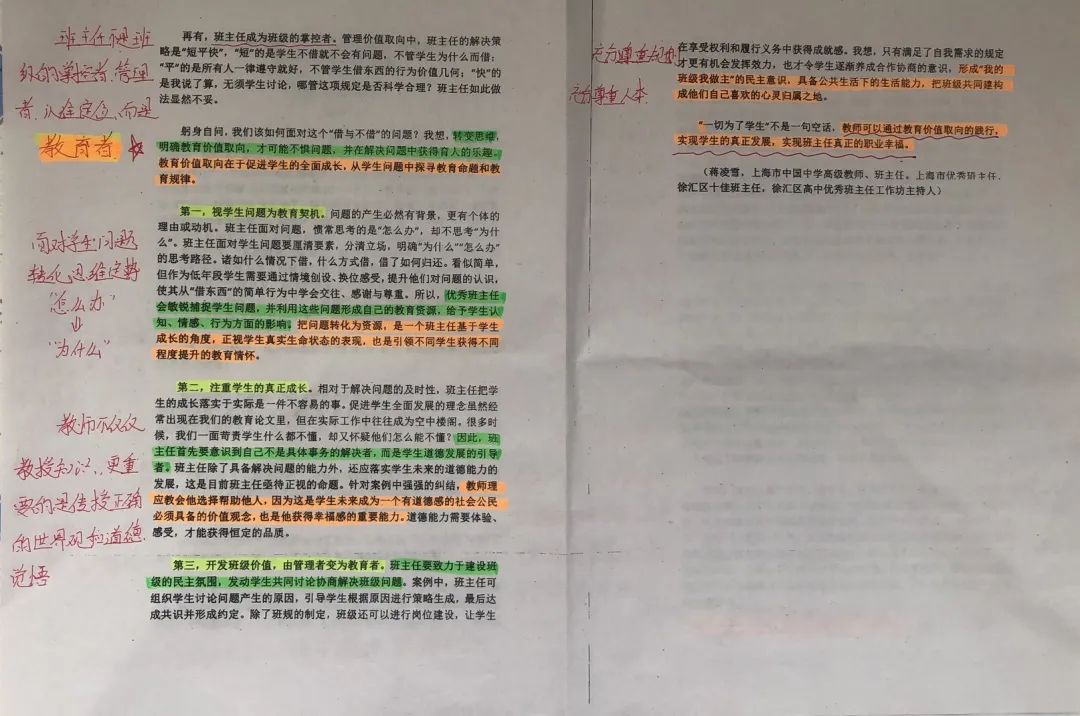 班主任不是班
级的掌控者、管理
者,认准定位,而是
教育者
面对学生问题
转化思维定势
"怎么办"
"为什么"
教师不仅仅
教授知识,更重
要的是传授正确
的世界观和道德
觉悟
再有,班主任成为班级的掌控者。管理价值取向中,班主任的解决策
略是"短平快","短"的是学生不借就不会有问题,不管学生为什么而借;
"平"的是所有人一律遵守就好,不管学生借东西的行为价值几何;"快"的
是我说了算,无须学生讨论,哪管这项规定是否科学合理?班主任如此做
法显然不妥。
躬身自问,我们该如何面对这个"借与不借"的问题?我想,转变思维,
明确教育价值取向,才可能不惧问题,并在解决问题中获得育人的乐趣。
教育价值取向在于促进学生的全面成长,从学生问题中探寻教育命题和教
育规律。
第一,视学生问题为教育契机。问题的产生必然有背景,更有个体的
理由或动机。班主任面对问题,惯常思考的是"怎么办",却不思考"为什
么"。班主任面对学生问题要厘清要素,分清立场,明确"为什么""怎么办"
的思考路径。诸如什么情况下借,什么方式借,借了如何归还。看似简单,
但作为低年段学生需要通过情境创设、换位感受,提升他们对问题的认识,
使其从"借东西"的简单行为中学会交往、感谢与尊重。所以,优秀班主任
会敏锐捕捉学生问题,并利用这些问题形成自己的教育资源,给予学生认
知、情感、行为方面的影响。把问题转化为资源,是一个班主任基于学生
成长的角度,正视学生真实生命状态的表现,也是引领不同学生获得不同
程度提升的教育情怀。
第二,注重学生的真正成长。相对于解决问题的及时性,班主任把学
生的成长落实于实际是一件不容易的事。促进学生全面发展的理念虽然经
常出现在我们的教育论文里,但在实际工作中往往成为空中楼阁,很多时
候,我们一面苛责学生什么都不懂,却又怀疑他们怎么能不懂?因此,班
主任首先要意识到自己不是具体事务的解决者,而是学生道德发展的引导
者。班主任除了具备解决问题的能力外,还应落实学生未来的道德能力的
发展,这是目前班主任亟待正视的命题。针对案例中强强的纠结,教师理
应教会他选择帮助他人,因为这是学生未来成为一个有道德感的社会公民
必须具备的价值观念,也是他获得幸福感的重要能力。道德能力需要体验、
感受,才能获得恒定的品质。
第三,开发班级价值,由管理者变为教育者。班主任要致力于建设班
级的民主氛围,发动学生共同讨论协商解决班级问题。案例中,班主任可
组织学生讨论问题产生的原因,引导学生根据原因进行策略生成,最后达
成共识并形成约定。除了班规的制定,班级还可以进行岗位建设,让学生
充分尊重
充分尊重人本
在享受权利和履行义务中获得成就感。我想,只有满足了自我需求的规定
才更有机会发挥效力,也才令学生逐渐养成合作协商的意识,形成"我的
班级我做主"的民主意识,具备公共生活下的生活能力,把班级共同建构
成他们自己喜欢的心灵归属之地。
"一切为了学生"不是一句空话,教师可以通过教育价值取向的践行,
实现学生的真正发展,实现班主任真正的职业幸福。
(蒋凌雪,上海市中国中学高级教师、班主任。上海市优秀班主任、
徐汇区十佳班主任,徐汇区高中优秀班主任工作坊主持人)